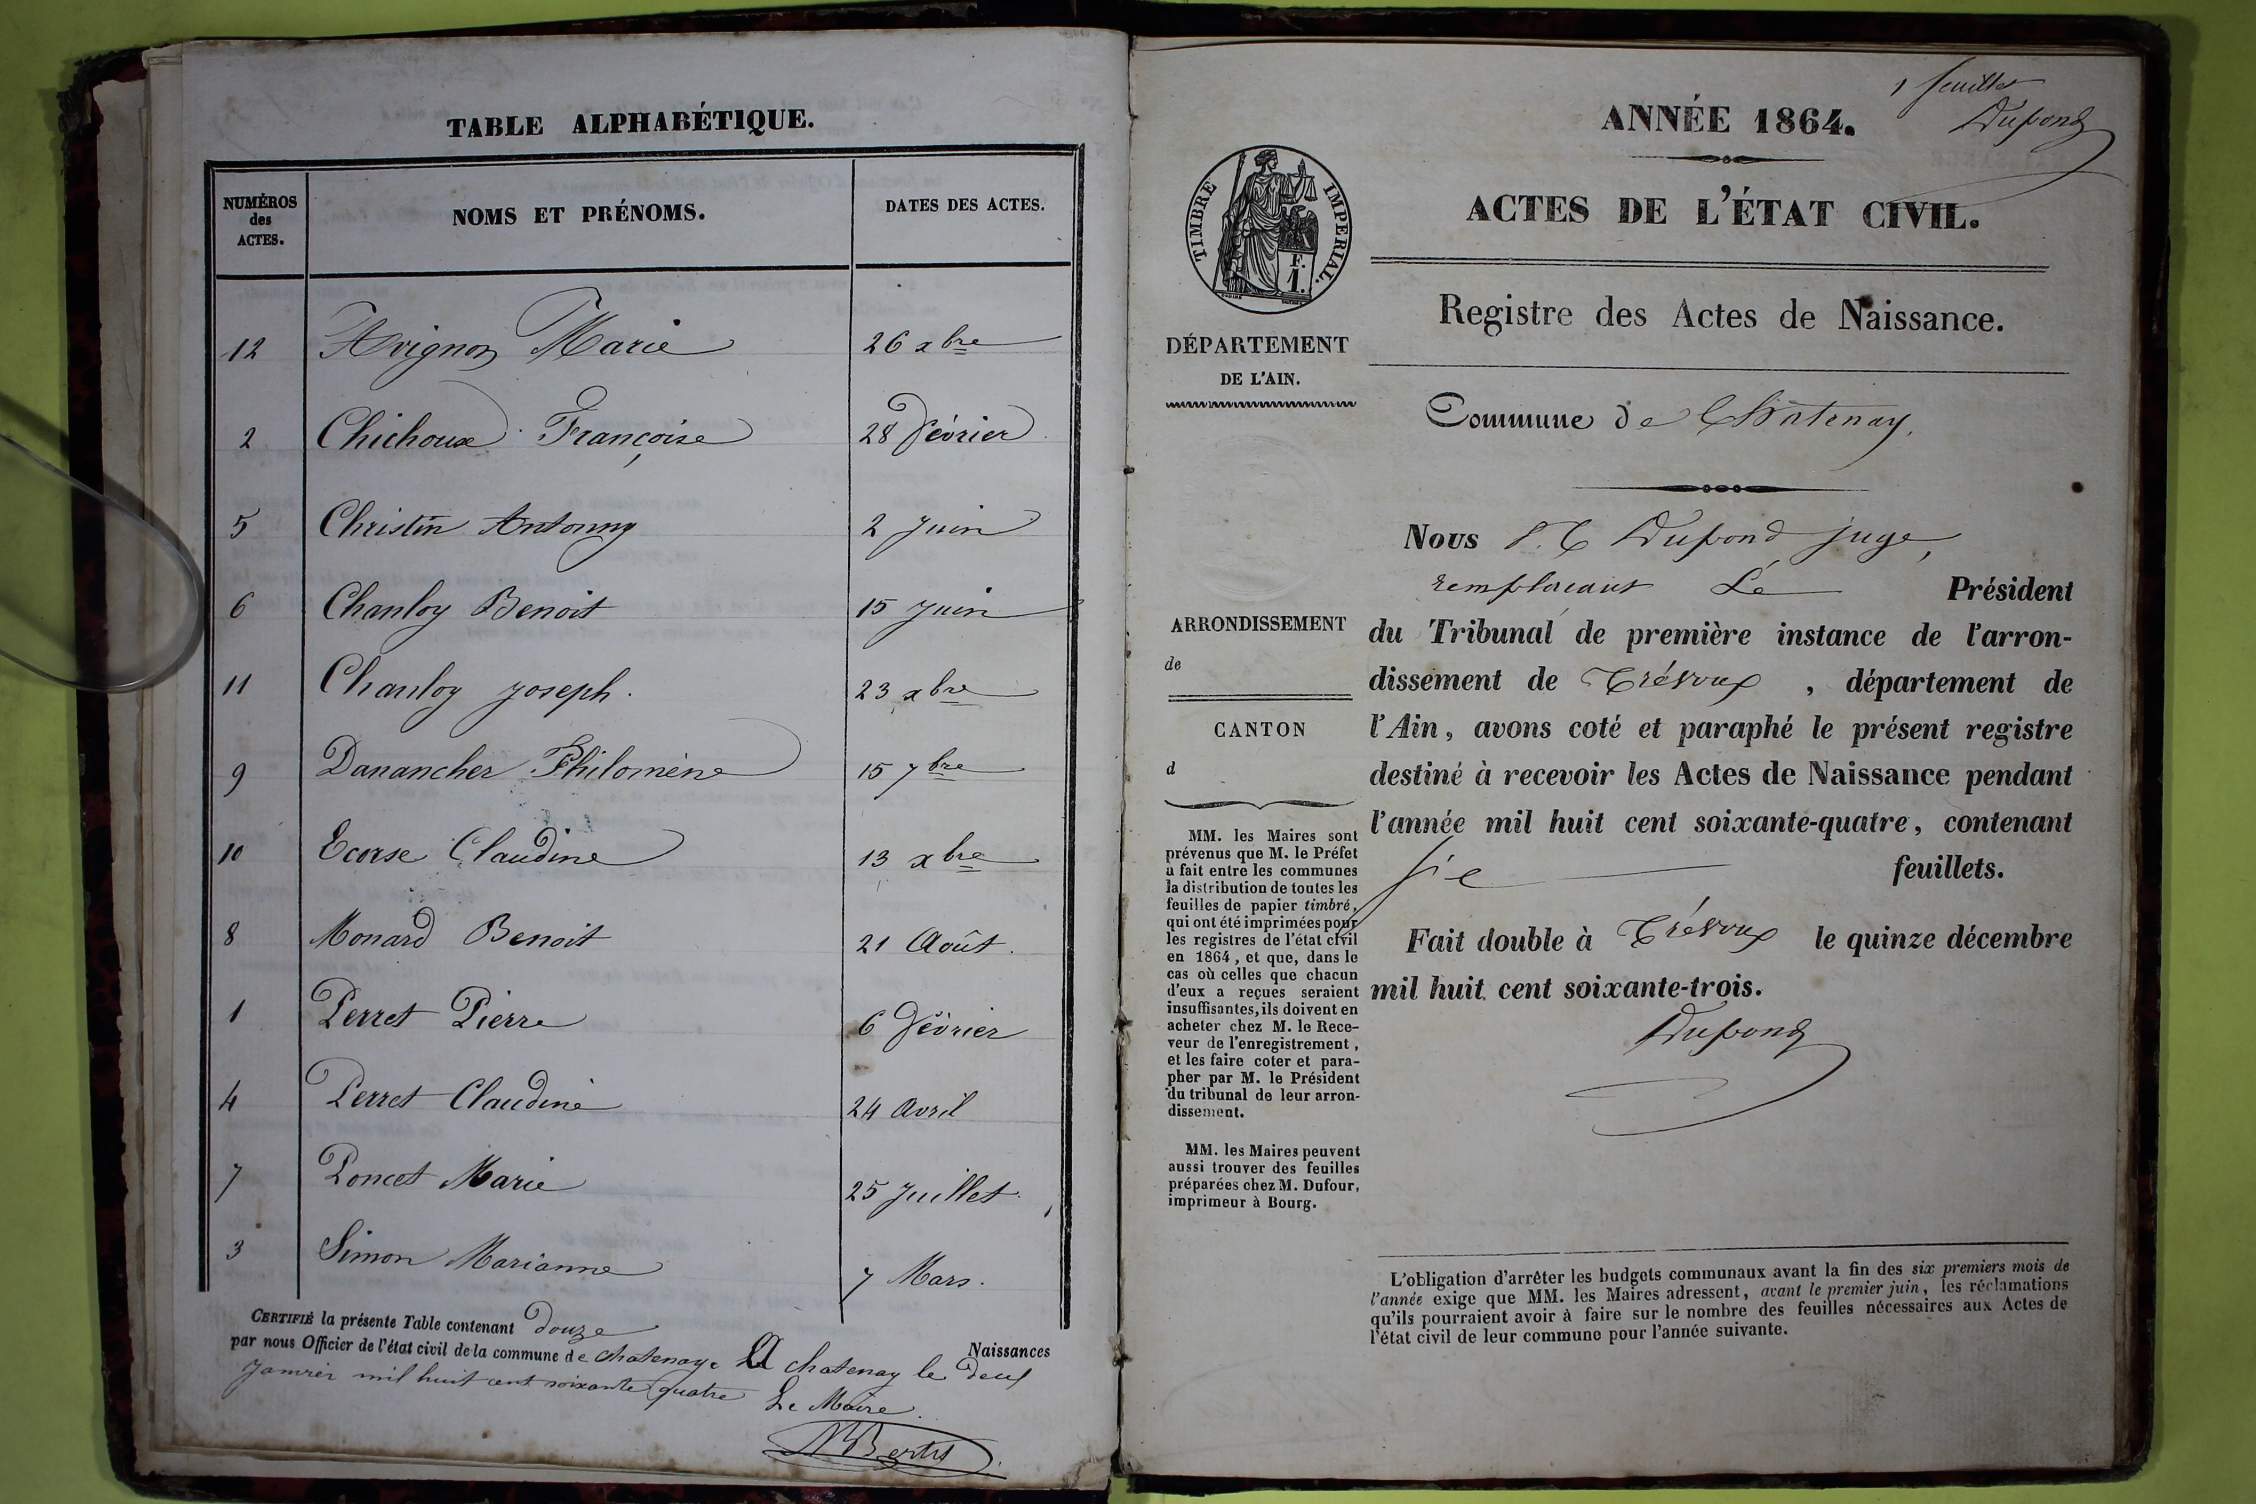 TABLE ALPHABÉTIQUE.
NUMÉROS des ACTES. NOMS ET PRÉNOMS. DATES DES ACTES.
12 Avignon Marie 26 xbre
2 Chichoux Françoise 28 Février
5 Christin Antonny 2 Juin
6 Chanloy Benoit 15 Juin
11 Chanloy Joseph. 23 xbre
9 Danancher Philomène 15 7bre
10 Ecorse Claudine 13 xbre
8 Monard Benoit 21 Août.
1 Perret Pierre 6 Février
4 Perret Claudine 24 Avril
7 Poncet Marie 25 Juillet
3 Simon Marianne 7 Mars.
CERTIFIÉ la présente Table contenant douze Naissances
par nous Officier de l'état civil de la commune de chatenay. A chatenay le deux
Janvier mil huit cent soixante quatre Le Maire.
1 feuillet
Dupond
ANNÉE 1864.
ACTES DE L'ÉTAT CIVIL.
Registre des Actes de Naissance.
TIMBRE IMPERIAL.
F.
1.
DÉPARTEMENT
DE L'AIN.
Commune de Châtenay.
Nous Dupond juge,
remplaçant Le Président
du Tribunal de première instance de l'arron-
dissement de Trévoux, département de
l'Ain, avons coté et paraphé le présent registre
destiné à recevoir les Actes de Naissance pendant
l'année mil huit cent soixante-quatre, contenant
six feuillets.
Fait double à Trévoux le quinze décembre
mil huit cent soixante-trois.
Dupond
ARRONDISSEMENT
de
CANTON
d
MM. les Maires sont
prévenus que M. le Préfet
a fait entre les communes
la distribution de toutes les
feuilles de papier timbré,
qui ont été imprimées pour
les registres de l'état civil
en 1864, et que, dans le
cas où celles que chacun
d'eux a reçues seraient
insuffisantes, ils doivent en
acheter chez M. le Rece-
veur de l'enregistrement,
et les faire coter et para-
pher par M. le Président
du tribunal de leur arron-
dissement.
MM. les Maires peuvent
aussi trouver des feuilles
préparées chez M. Dufour,
imprimeur à Bourg.
L'obligation d'arrêter les budgets communaux avant la fin des six premiers mois de
l'année exige que MM. les Maires adressent, avant le premier juin, les réclamations
qu'ils pourraient avoir à faire sur le nombre des feuilles nécessaires aux Actes de
l'état civil de leur commune pour l'année suivante.